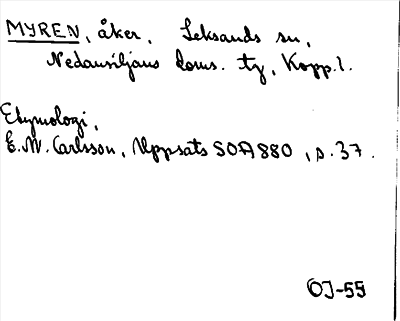 MYREN, åker, Leksands sn,
Nedansiljans doms. tg, Kopp.l.
Etymologi,
E.W. Carlsson, Uppsats SOA 880, s. 37.
OJ-55